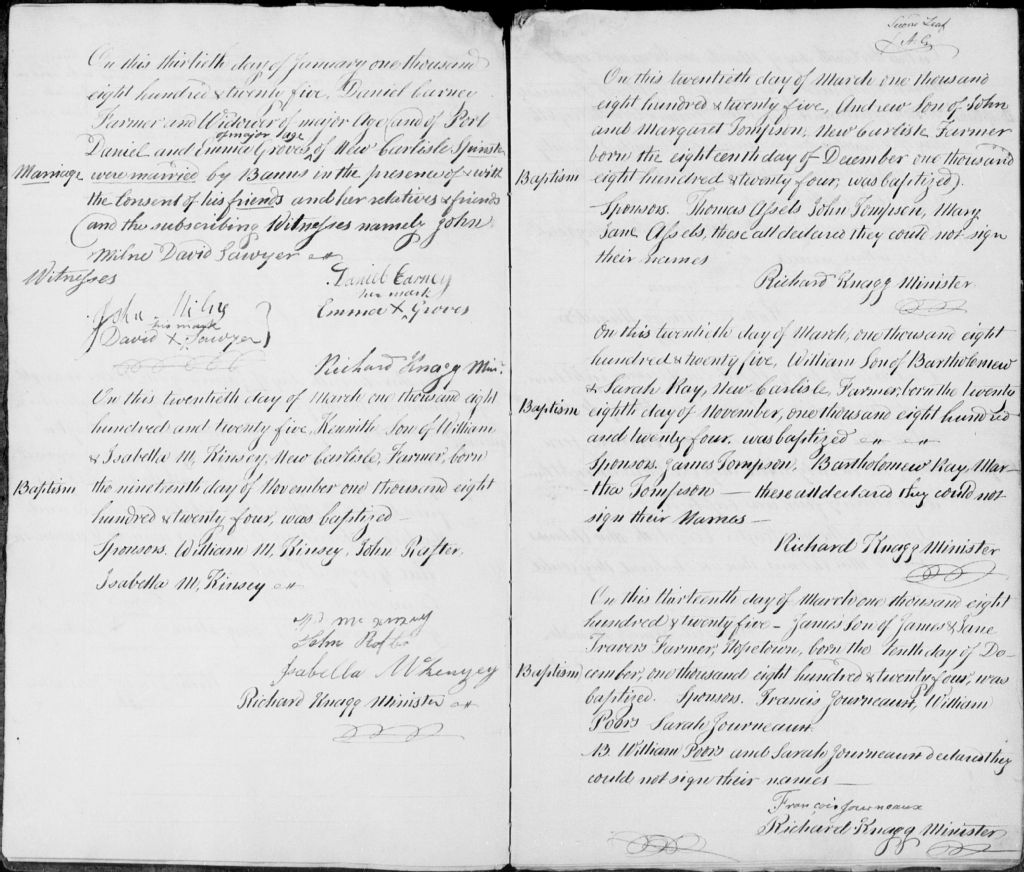 On this thirtieth day of January one thousand
eight hundred & twenty five, Daniel Carney
Farmer and Widower of major age (and of Port
of major age
Daniel and Emma Groves, of New Carlisle Spinster
Marriage were married by Banns in the presence of & with
the Consent of his friends and her relatives & friends
(and the subscribing Witnesses namely John
Milne David Sawyer
Witnesses
Daniel Carney
her mark
Emma X Groves
John Milne
his mark
David X Sawyer
Richard Knagg Minr.
On this twentieth day of March one thousand eight
hundred and twenty five, Kennith Son of William
& Isabella M, Kinsey, New Carlisle, Farmer, born
Baptism the nineteenth day of November one thousand eight
hundred & twenty four, was baptized —
Sponsors, William M, Kinsey, John Rafter,
Isabella M, Kinsey
John
Isabella McKenzey
Richard Knagg Minister
Leaf
On this twentieth day of March one thousand
eight hundred & twenty five, Andrew Son of John
and Margaret Tompson, New Carlisle Farmer
born the eighteenth day of December one thousand
Baptism eight hundred & twenty four, was baptized).
Sponsors. Thomas Assels John Tompson, Mary
Jane Assels, these all declared they could not sign
their names
Richard Knagg Minister
On this twentieth day of March, one thousand eight
hundred & twenty five, William Son of Bartholomew
& Sarah Kay, New Carlisle, Farmer, born the twenty
Baptism eighth day of November, one thousand eight hundred
and twenty four, was baptized
Sponsors. James Tompson, Bartholomew Kay, Mar-
-tha Tompson — these all declared they could not
sign their Names —
Richard Knagg Minister
On this thirteenth day of March one thousand eight
hundred & twenty five — James Son of James & Jane
Travers Farmer, Hopetown, born the tenth day of De-
Baptism cember, one thousand eight hundred & twenty four, was
baptized. Sponsors. Francis Journeaux, William
Poors Sarah Journeaux
N.B. William Poors and Sarah Journeaux declared they
could not sign their names —
François Journeaux
Richard Knagg Minister